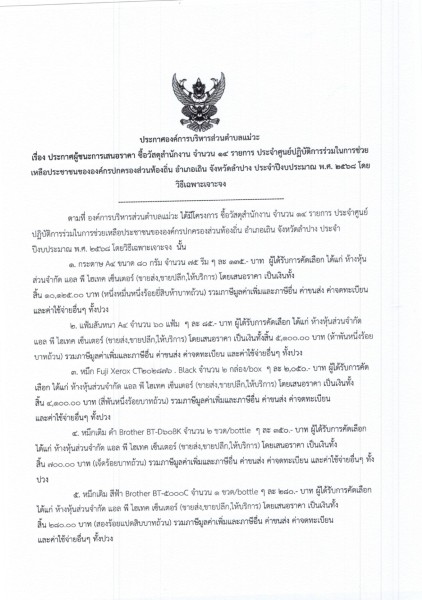 ประกาศองค์การบริหารส่วนตำบลแม่วะ
เรื่อง ประกาศผู้ชนะการเสนอราคา ซื้อวัสดุสำนักงาน จำนวน ๑๔ รายการ ประจำศูนย์ปฏิบัติการร่วมในการช่วย
เหลือประชาชนขององค์กรปกครองส่วนท้องถิ่น อำเภอเถิน จังหวัดลำปาง ประจำปีงบประมาณ พ.ศ. ๒๕๖๘ โดย
วิธีเฉพาะเจาะจง
ตามที่ องค์การบริหารส่วนตำบลแม่วะ ได้มีโครงการ ซื้อวัสดุสำนักงาน จำนวน ๑๔ รายการ ประจำศูนย์
ปฏิบัติการร่วมในการช่วยเหลือประชาชนขององค์กรปกครองส่วนท้องถิ่น อำเภอเถิน จังหวัดลำปาง ประจำ
ปีงบประมาณ พ.ศ. ๒๕๖๘ โดยวิธีเฉพาะเจาะจง นั้น
๑. กระดาษ A๔ ขนาด ๘๐ กรัม จำนวน ๗๕ รีม ๆ ละ ๑๓๕.- บาท ผู้ได้รับการคัดเลือก ได้แก่ ห้างหุ้น
ส่วนจำกัด แอล พี ไฮเทค เซ็นเตอร์ (ขายส่ง,ขายปลีก,ให้บริการ) โดยเสนอราคา เป็นเงินทั้ง
สิ้น ๑๐,๑๒๕.๐๐ บาท (หนึ่งหมื่นหนึ่งร้อยยี่สิบห้าบาทถ้วน) รวมภาษีมูลค่าเพิ่มและภาษีอื่น ค่าขนส่ง ค่าจดทะเบียน
และค่าใช้จ่ายอื่นๆ ทั้งปวง
๒. แฟ้มสันหนา A๔ จำนวน ๖๐ แฟ้ม ๆ ละ ๘๕.- บาท ผู้ได้รับการคัดเลือก ได้แก่ ห้างหุ้นส่วนจำกัด
แอล พี ไฮเทค เซ็นเตอร์ (ขายส่ง,ขายปลีก,ให้บริการ) โดยเสนอราคา เป็นเงินทั้งสิ้น ๕,๑๐๐.๐๐ บาท (ห้าพันหนึ่งร้อย
บาทถ้วน) รวมภาษีมูลค่าเพิ่มและภาษีอื่น ค่าขนส่ง ค่าจดทะเบียน และค่าใช้จ่ายอื่นๆ ทั้งปวง
๓. หมึก Fuji Xerox CT๒๐๒๘๗๖ . Black จำนวน ๒ กล่อง/box ๆ ละ ๒,๐๕๐.- บาท ผู้ได้รับการคัด
เลือก ได้แก่ ห้างหุ้นส่วนจำกัด แอล พี ไฮเทค เซ็นเตอร์ (ขายส่ง,ขายปลีก,ให้บริการ) โดยเสนอราคา เป็นเงินทั้ง
สิ้น ๔,๑๐๐.๐๐ บาท (สี่พันหนึ่งร้อยบาทถ้วน) รวมภาษีมูลค่าเพิ่มและภาษีอื่น ค่าขนส่ง ค่าจดทะเบียน
และค่าใช้จ่ายอื่นๆ ทั้งปวง
๔. หมึกเติม ดำ Brother BT-D๖๐BK จำนวน ๒ ขวด/bottle ๆ ละ ๓๕๐.- บาท ผู้ได้รับการคัดเลือก
ได้แก่ ห้างหุ้นส่วนจำกัด แอล พี ไฮเทค เซ็นเตอร์ (ขายส่ง,ขายปลีก,ให้บริการ) โดยเสนอราคา เป็นเงินทั้ง
สิ้น ๗๐๐.๐๐ บาท (เจ็ดร้อยบาทถ้วน) รวมภาษีมูลค่าเพิ่มและภาษีอื่น ค่าขนส่ง ค่าจดทะเบียน และค่าใช้จ่ายอื่นๆ ทั้ง
ปวง
๕. หมึกเติม สีฟ้า Brother BT-๕๐๐๐C จำนวน ๑ ขวด/bottle ๆ ละ ๒๘๐.- บาท ผู้ได้รับการคัดเลือก
ได้แก่ ห้างหุ้นส่วนจำกัด แอล พี ไฮเทค เซ็นเตอร์ (ขายส่ง,ขายปลีก,ให้บริการ) โดยเสนอราคา เป็นเงินทั้ง
สิ้น ๒๘๐.๐๐ บาท (สองร้อยแปดสิบบาทถ้วน) รวมภาษีมูลค่าเพิ่มและภาษีอื่น ค่าขนส่ง ค่าจดทะเบียน
และค่าใช้จ่ายอื่นๆ ทั้งปวง